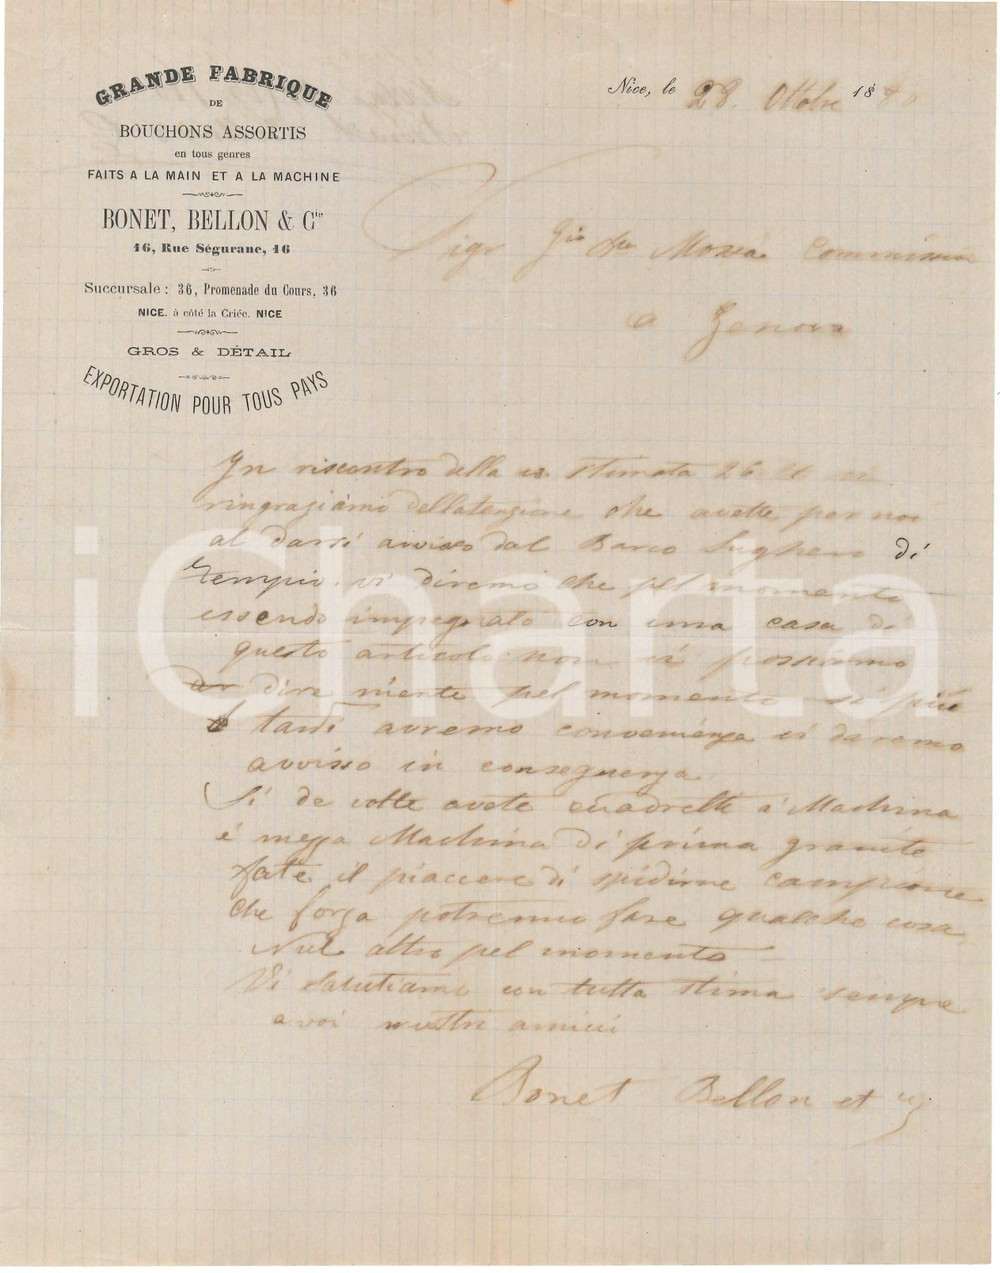 GRANDE FABRIQUE
DE
BOUCHONS ASSORTIS
en tous genres
FAITS A LA MAIN ET A LA MACHINE
BONET, BELLON & Cie
16, Rue Ségurane, 16
Succursale : 36, Promenade du Cours, 36
NICE. à côté la Criée. NICE
GROS & DÉTAIL
EXPORTATION POUR TOUS PAYS
Nice, le 28 Ottobre 1880
Sigr Gio Commissr
a Genova
In riscontro della stimata 26
ringraziamo dellatenzione che avette per noi
al darsi avviso dal Barco Sughero di
Tempio. vi diremo che pel momento
essendo impegnato con una casa di
questo articolo non vi possiamo
dire niente pel momento si più
tardi avremo convenienza vi daremo
avvisso in conseguenza.
Si de volte avete quadretti a Machina
é mezza Machina di prima granite
fate il piaccere di spidirne campione
che forza potremo fare qualche cosa
Nul altro pel momento
Vi salutiamo con tutta stima sempre
a voi nostri amici
Bonet Bellon et Cie
iCharta